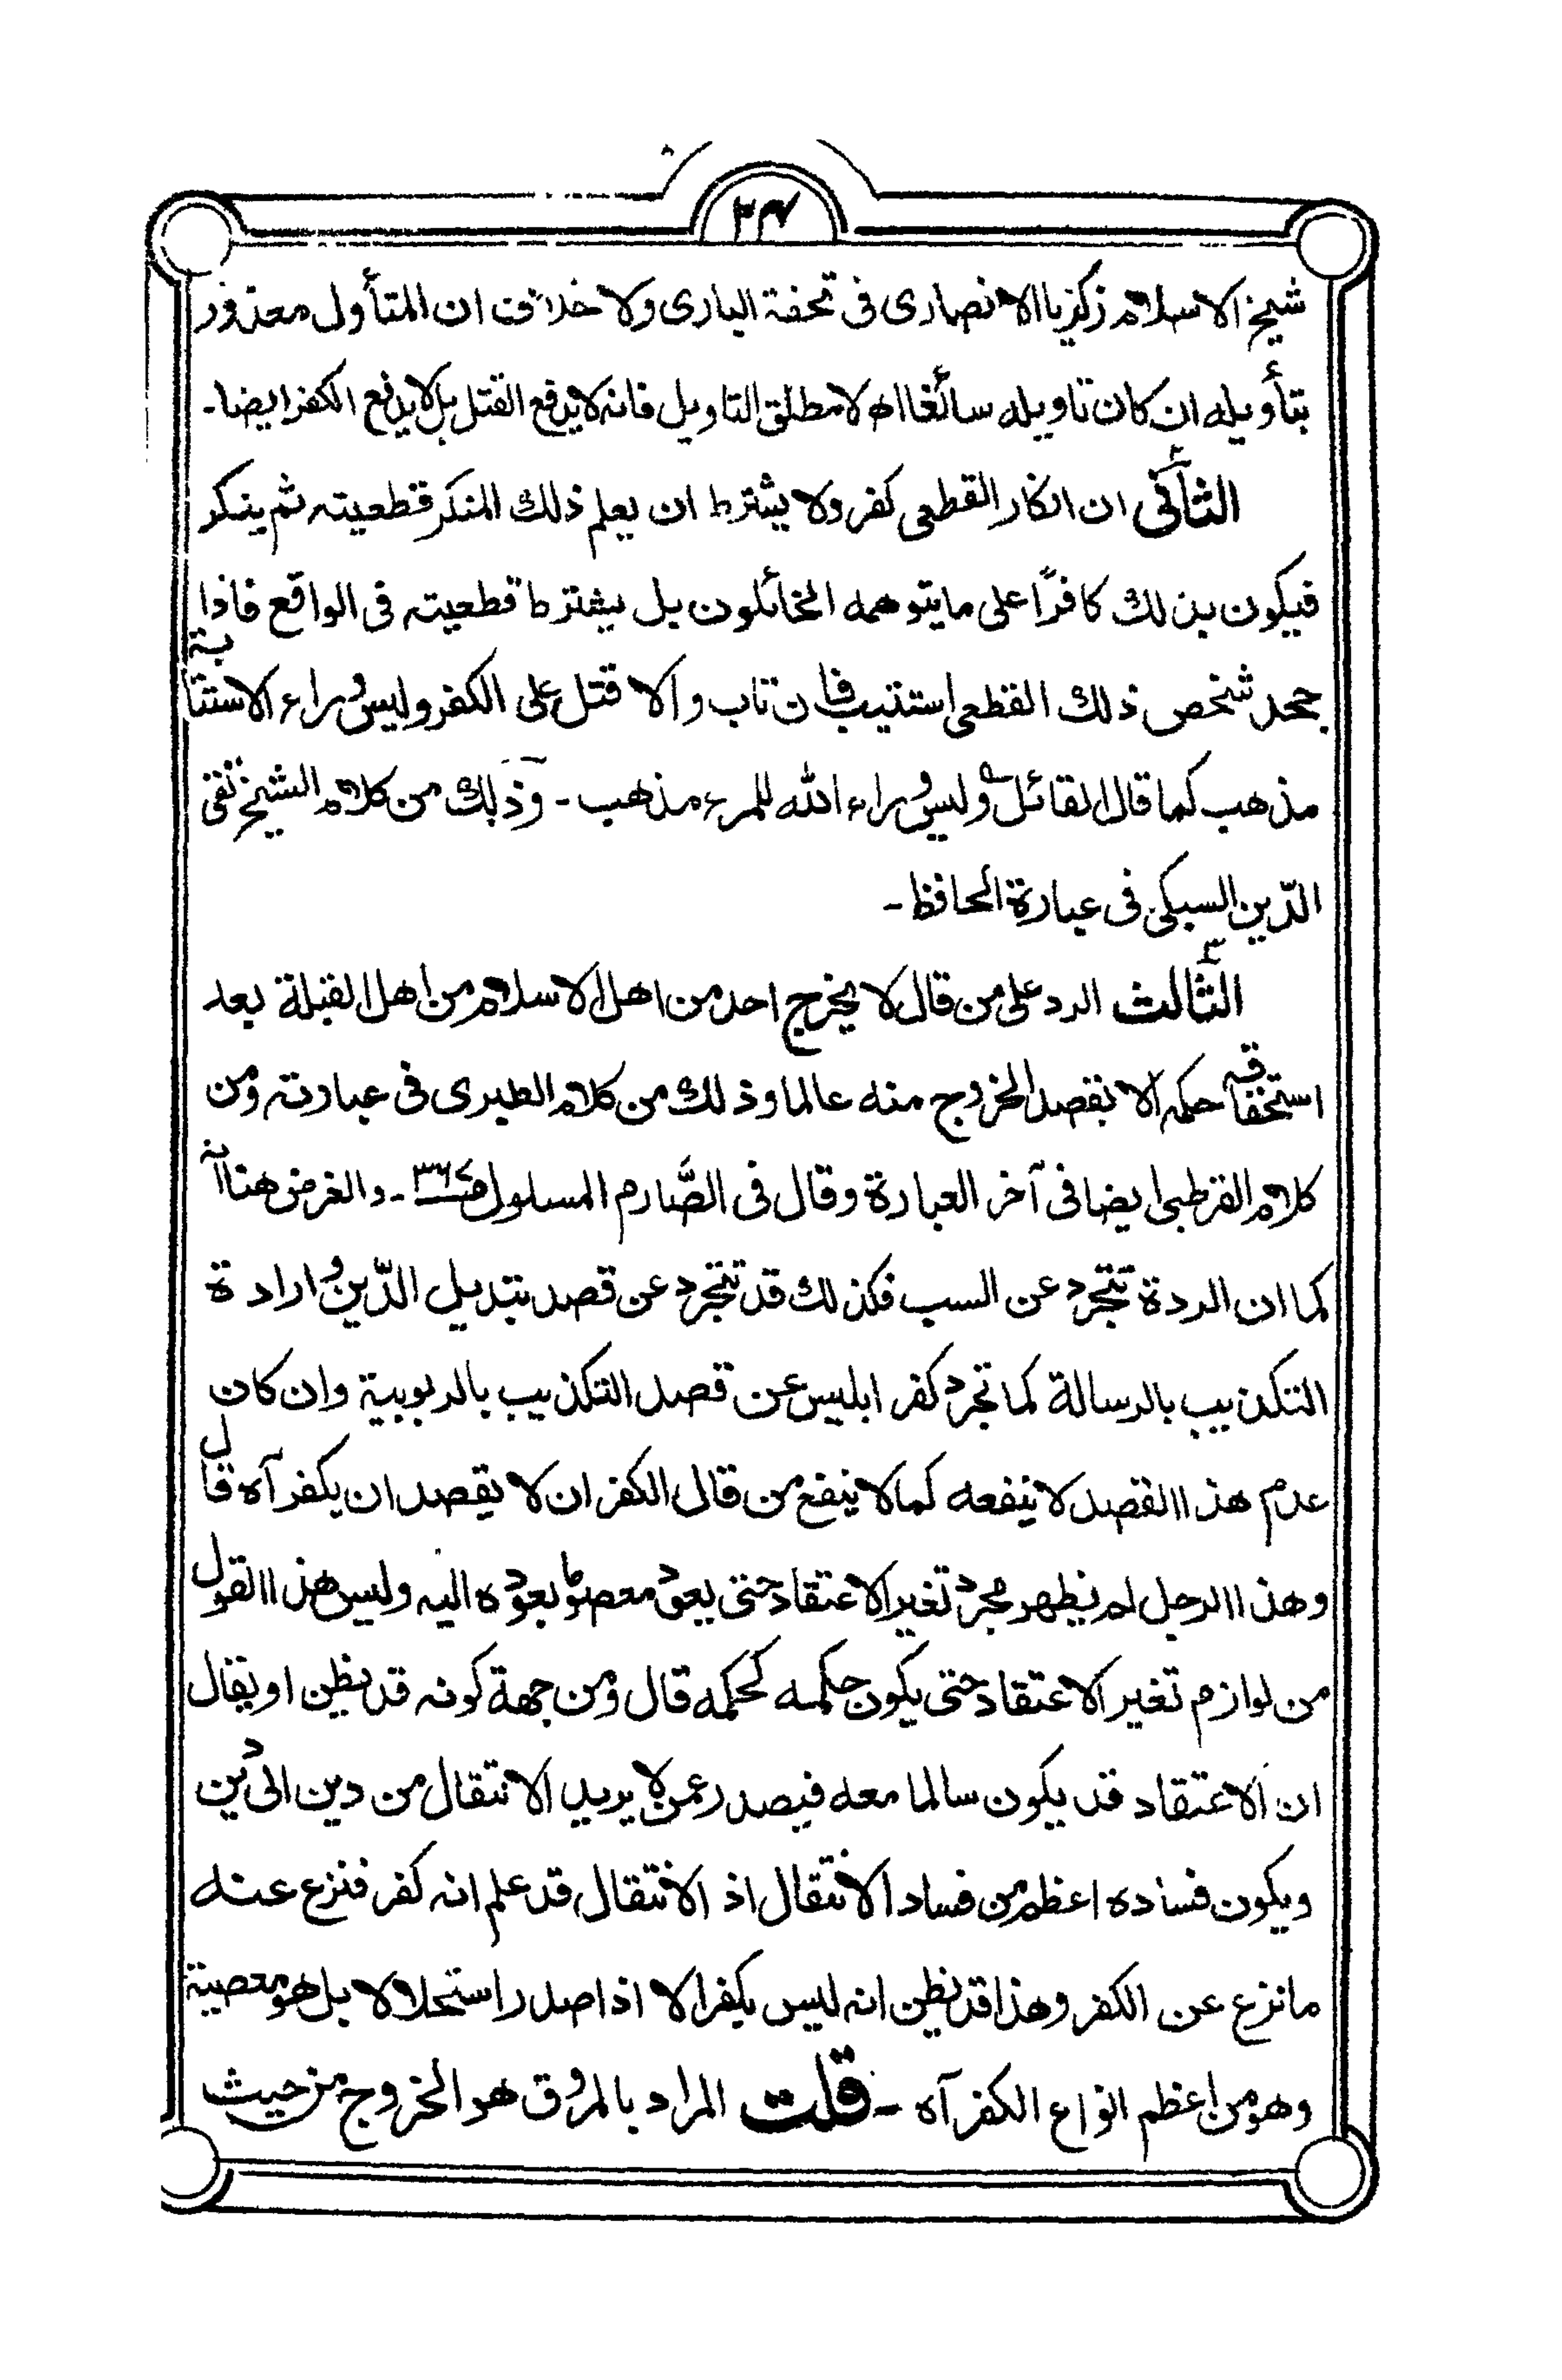 ۲۴
شيخ الاسلام زكريا الانصارى فى تحفة البارى ولا خلاف ان المتأول معذور
بتأويله ان كان تاويله سائغا اھ لا مطلق التاويل فانه لا يدفع القتل بل لا يدفع الكفر ايضا۔
الثانى ان انكار القطعى كفر ولا يشترط ان يعلم ذلك المنكر قطعيته ثم ينكر
فيكون بذلك كافرًا على مايتوهمه الخائلون بل يشترط قطعيته فى الواقع فاذا
جحد شخص ذلك القطعى استتيب فان تاب والا قتل على الكفر وليس وراء الاستتابة
مذهب كما قال القائل ؎ وليس وراء الله للمرء مذهب۔ وذلك من كلام الشيخ تقى
الدّين السبكى فى عبارة الحافظ۔
الثالث الرد على من قال لا يخرج احد من اهل الاسلام من اهل القبلة بعد
استحقاقه حكمه الا بقصد الخروج منه عالما وذلك من كلام الطبرى فى عبارته ومن
كلام القرطبى ايضا فى آخر العبارة وقال فى الصَّارم المسلول ص۳۶۷۔ والغرض هنا انه
كما ان الردة تتجرد عن السب فكذلك قد تتجرد عن قصد تبديل الدّين وارادة
التكذيب بالرسالة كما تجرد كفر ابليس عن قصد التكذيب بالربوبية وان كان
عدم هذا القصد لا ينفعه كما لا ينفع من قال الكفر ان لا يقصد ان يكفر آه قال
وهذا الرجل لم يظهر مجرد تغير الاعتقاد حتى يعود معصوما بعوده اليه وليس هذا القول
من لوازم تغير الاعتقاد حتى يكون حكمه كحكمه قال ومن جهة كونه قد يظن او يقال
ان الاعتقاد قد يكون سالما معه فيصدر عمن لا يريد الانتقال من دين الى دين
ويكون فساده اعظم من فساد الانتقال اذ الانتقال قد علم انه كفر فنزع عنه
مانزع عن الكفر وهذا قد يظن انه ليس بكفر الا اذا صدر استحلالا بل هو معصية
وهو من اعظم انواع الكفر آه ۔ قلت المراد بالمروق هو الخروج من حيث